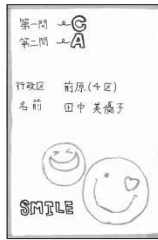 第一問 C
第二問 A
行政区 前原(4区)
名前 田中美優子
SMILE